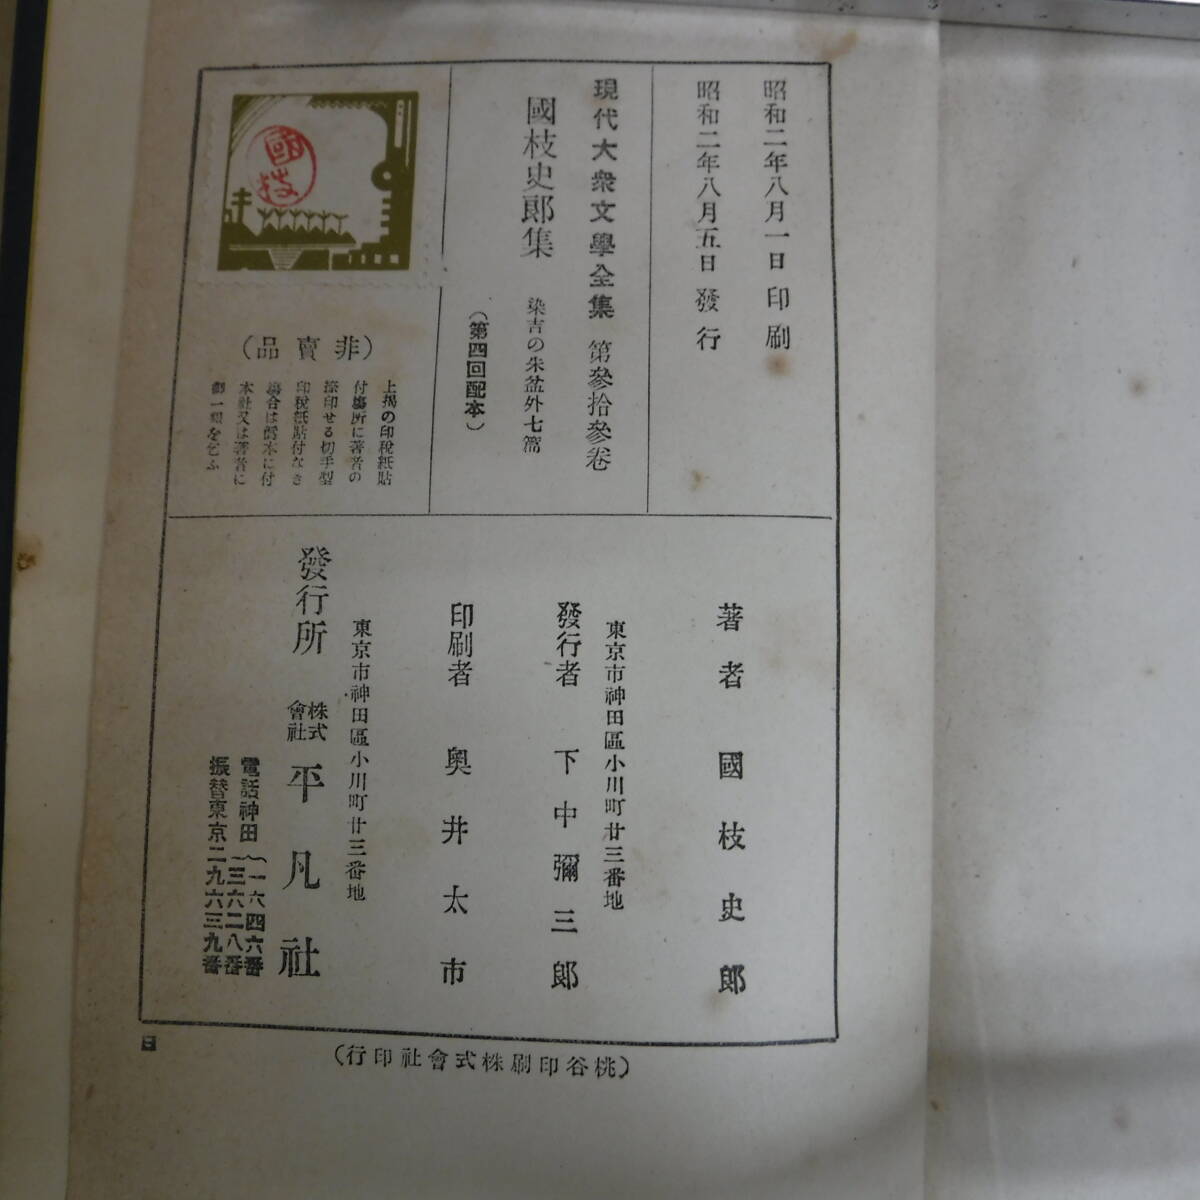 昭和二年八月一日印刷
昭和二年八月五日發行
現代大衆文學全集 第參拾參卷
國枝史郎集 染吉の朱盆外七篇
（第四回配本）
國枝
（非賣品）
上揭の印稅紙貼
付箇所に著者の
捺印せる切手型
印稅紙貼付なき
場合は僞本に付
本社又は著者に
御一報を乞ふ
著者 國枝史郎
東京市神田區小川町廿三番地
發行者 下中彌三郎
印刷者 奧井太市
東京市神田區小川町廿三番地
發行所 株式會社 平凡社
電話神田（一六四六番
三六二八番
振替東京二九六三九番
（桃谷印刷株式會社印行）